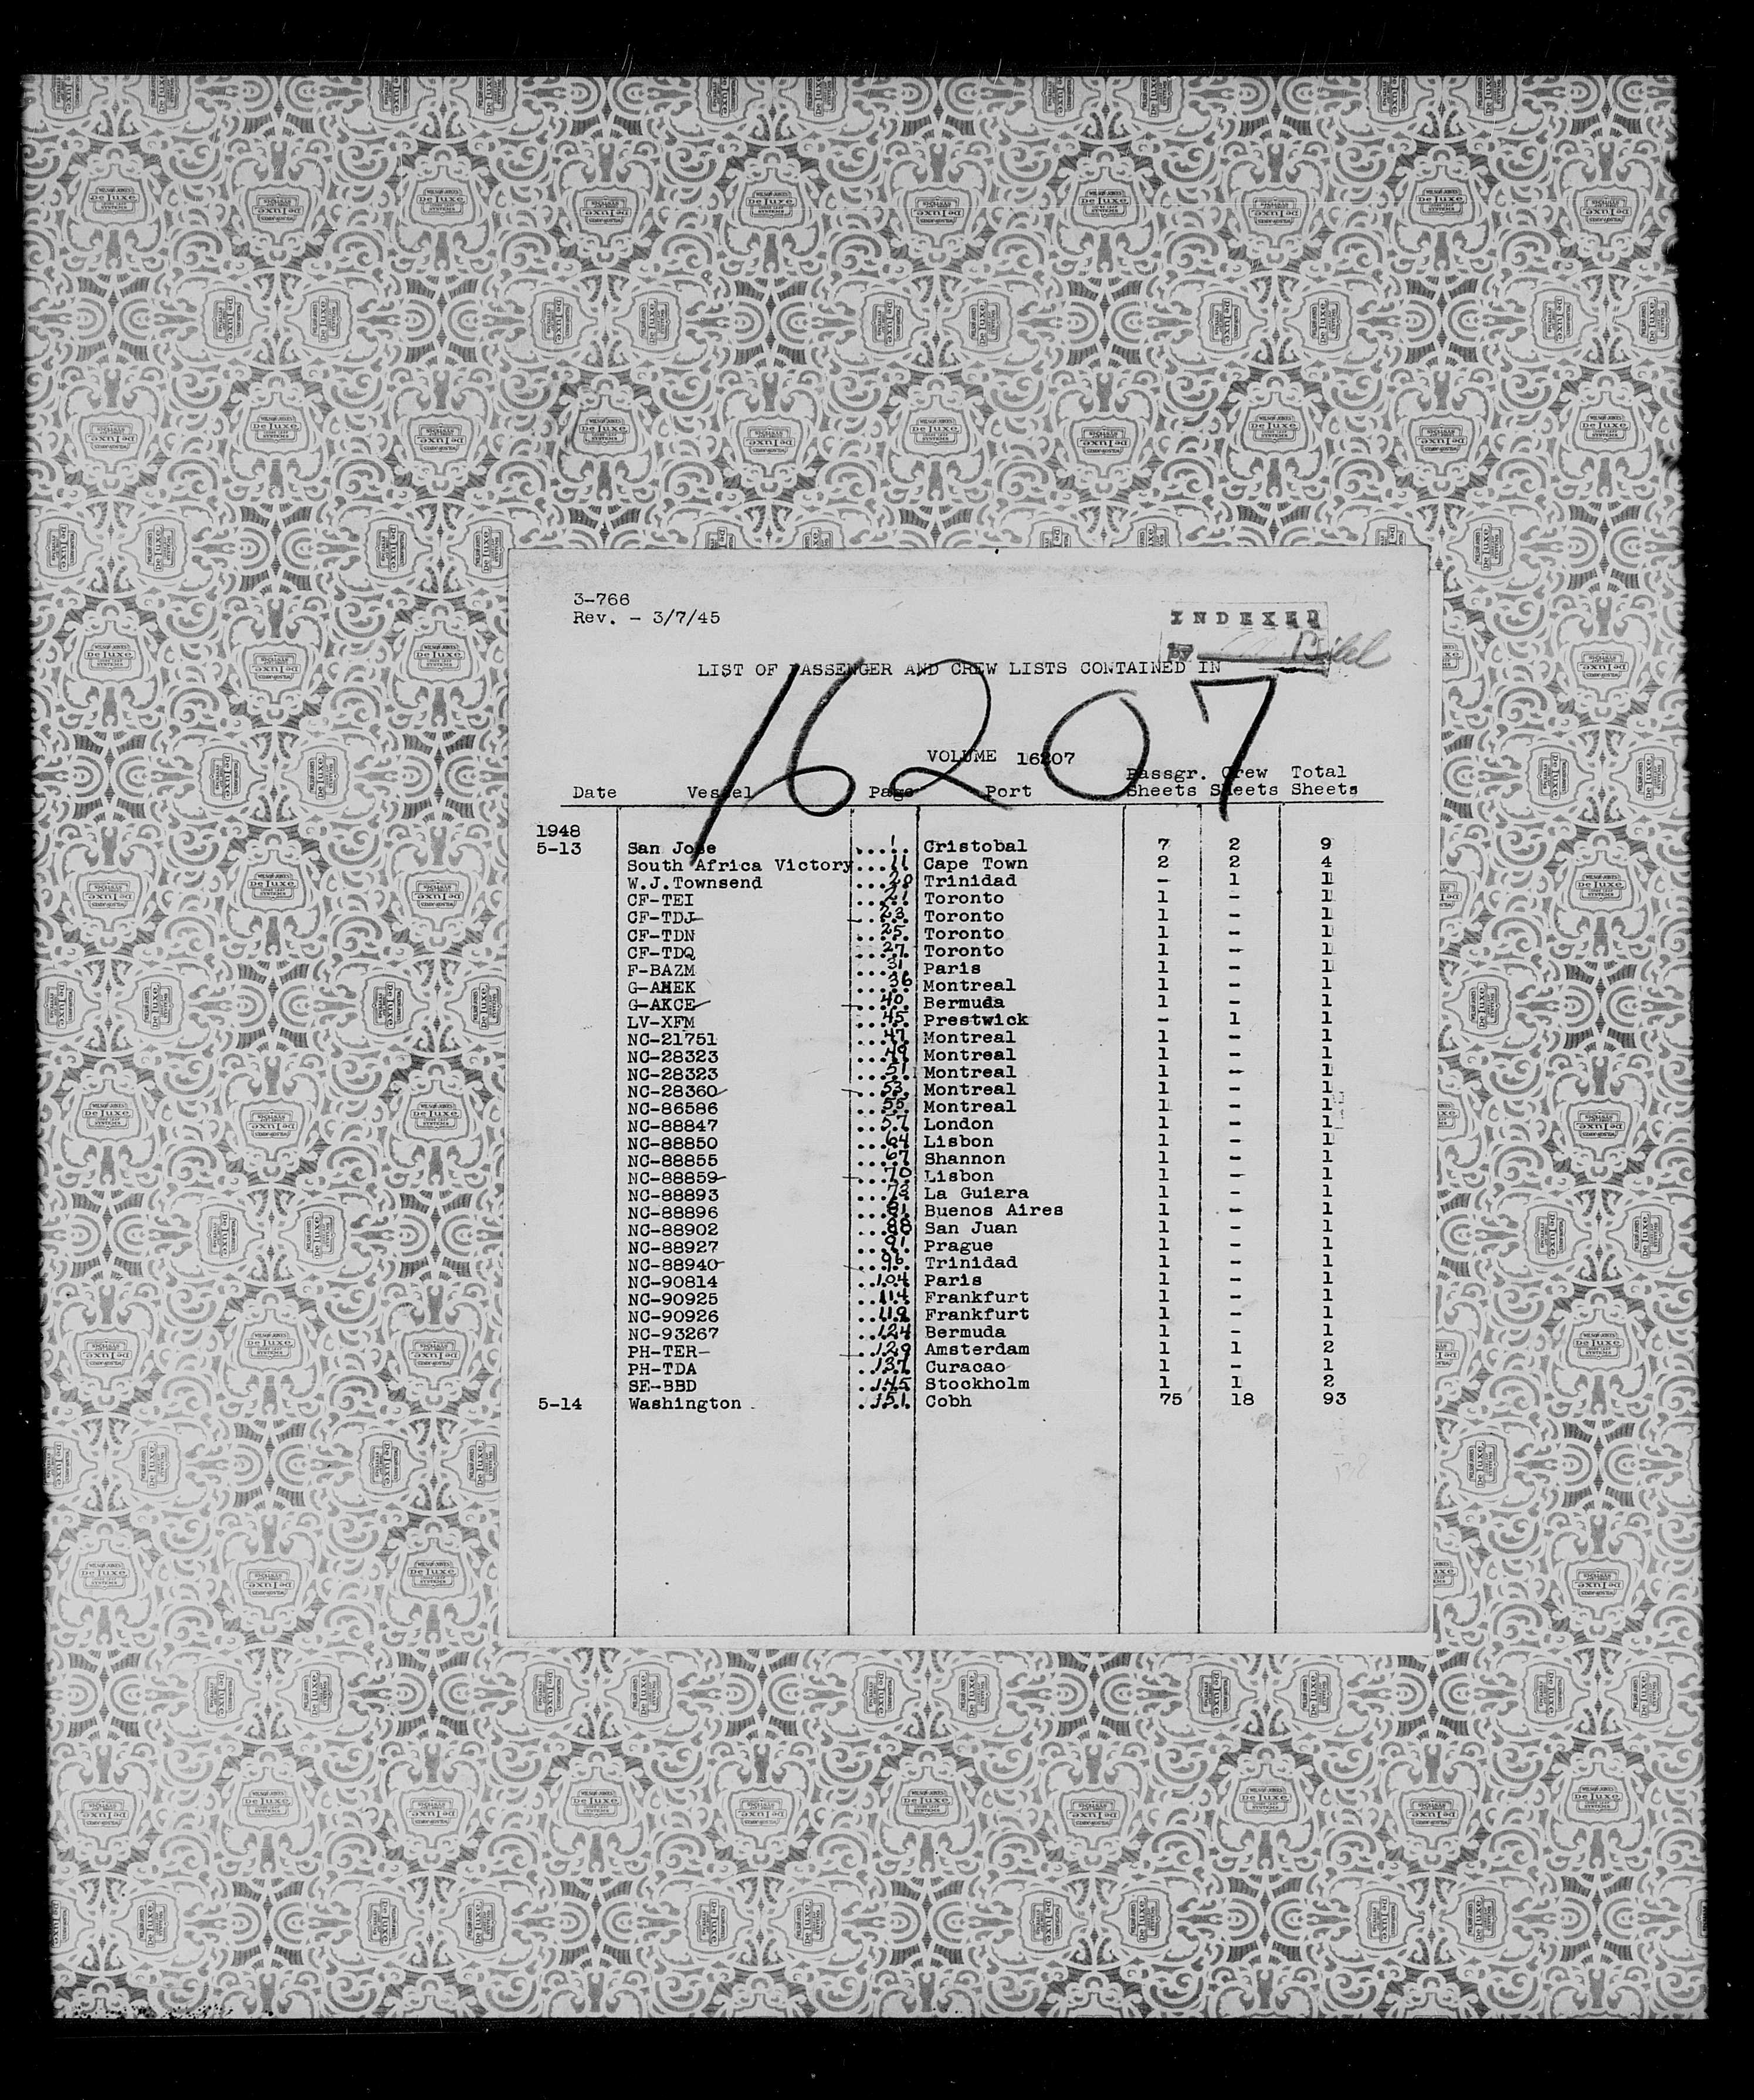 3-766
Rev. - 3/7/45
INDEXED
BY
LIST OF PASSENGER AND CREW LISTS CONTAINED IN
16207
VOLUME 16207
Date Vessel Page Port Passgr. Sheets Crew Sheets Total Sheets
1948
5-13 San Jose ..... 1 Cristobal 7 2 9
South Africa Victory .... 11 Cape Town 2 2 4
W.J.Townsend .... 20 Trinidad - 1 1
CF-TEI .... 21 Toronto 1 - 1
CF-TDJ .... 23 Toronto 1 - 1
CF-TDN .... 25 Toronto 1 - 1
CF-TDQ .... 27 Toronto 1 - 1
F-BAZM .... 31 Paris 1 - 1
G-AHEK .... 36 Montreal 1 - 1
G-AKCE .... 40 Bermuda 1 - 1
LV-XFM .... 45 Prestwick - 1 1
NC-21751 .... 47 Montreal 1 - 1
NC-28323 .... 49 Montreal 1 - 1
NC-28323 .... 51 Montreal 1 - 1
NC-28360 .... 53 Montreal 1 - 1
NC-86586 .... 55 Montreal 1 - 1
NC-88847 .... 57 London 1 - 1
NC-88850 .... 64 Lisbon 1 - 1
NC-88855 .... 67 Shannon 1 - 1
NC-88859 .... 70 Lisbon 1 - 1
NC-88893 .... La Guiara 1 - 1
NC-88896 .... 81 Buenos Aires 1 - 1
NC-88902 .... 88 San Juan 1 - 1
NC-88927 .... 91 Prague 1 - 1
NC-88940 .... 96 Trinidad 1 - 1
NC-90814 .... 104 Paris 1 - 1
NC-90925 .... 114 Frankfurt 1 - 1
NC-90926 .... 119 Frankfurt 1 - 1
NC-93267 .... 124 Bermuda 1 - 1
PH-TER .... 129 Amsterdam 1 1 2
PH-TDA .... 137 Curacao 1 - 1
SE-BBD .... 145 Stockholm 1 1 2
5-14 Washington .... 151 Cobh 75 18 93